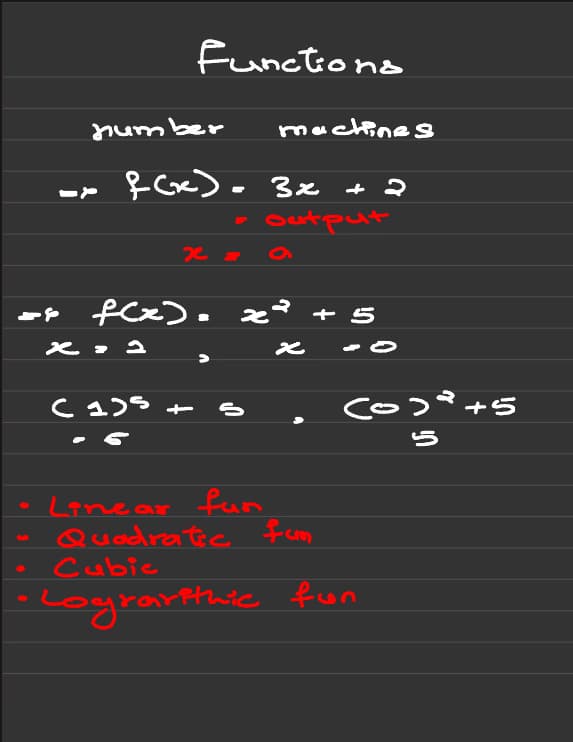 Functions
number machines
→ f(x) = 3x + 2
= output
x = a
→ f(x) = x² + 5
x = 1 , x = 0
(1)⁵ + 5 , (0)² + 5
= 6 5
• Linear fun
• Quadratic fun
• Cubic
• Lograrithic fun